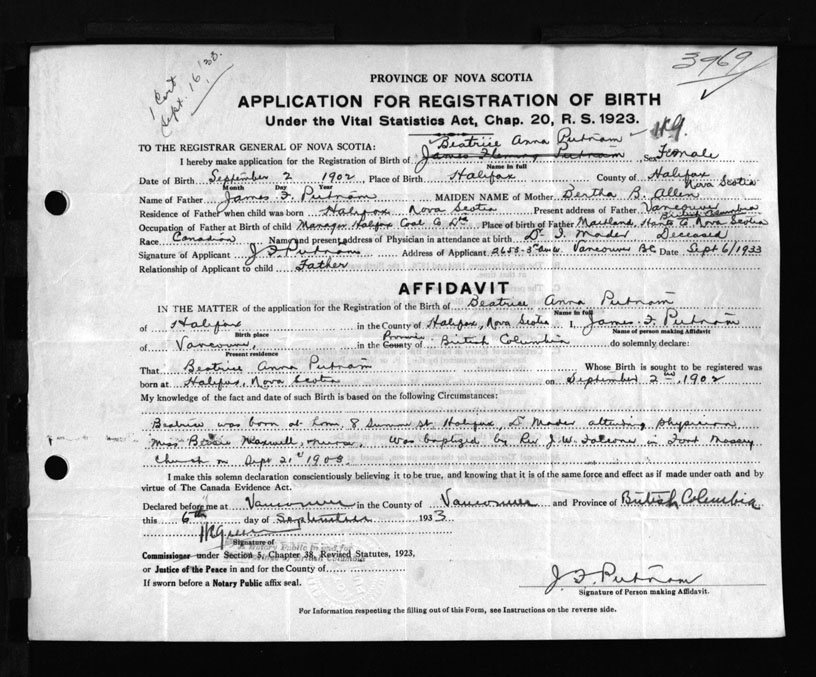 1 Cert
Sept. 16/33.
3969
PROVINCE OF NOVA SCOTIA
APPLICATION FOR REGISTRATION OF BIRTH
Under the Vital Statistics Act, Chap. 20, R. S. 1923.
TO THE REGISTRAR GENERAL OF NOVA SCOTIA:
Beatrice Anna Putnam
I hereby make application for the Registration of Birth of James Fleming Putnam Sex Female
Name in full
Date of Birth September 2 1902 Place of Birth Halifax County of Halifax Nova Scotia
Month Day Year
Name of Father James F. Putnam MAIDEN NAME of Mother Bertha B. Allen
Residence of Father when child was born Halifax Nova Scotia Present address of Father Vancouver British Columbia
Occupation of Father at Birth of child Manager Halifax Coal Co Place of birth of Father Maitland, Hants Co Nova Scotia
Race Canadian Name and present address of Physician in attendance at birth Dr. Mader Deceased
Signature of Applicant J. F. Putnam Address of Applicant 2653-3rd Ave W. Vancouver BC Date Sept 6/1933
Relationship of Applicant to child Father
AFFIDAVIT
IN THE MATTER of the application for the Registration of the Birth of Beatrice Anna Putnam
Name in full
of Halifax in the County of Halifax, Nova Scotia I, James F. Putnam
Birth place Name of person making Affidavit
of Vancouver, in the County of Province British Columbia do solemnly declare:
Present residence
That Beatrice Anna Putnam Whose Birth is sought to be registered was
born at Halifax, Nova Scotia on September 2nd, 1902
My knowledge of the fact and date of such Birth is based on the following Circumstances:
Beatrice was born at home, 8 Summer St Halifax, Dr Mader attending physician
Miss Bessie Maxwell, nurse. Was baptized by Rev J. W. Falconer in Fort Massey
Church on Sept 21st 1903.
I make this solemn declaration conscientiously believing it to be true, and knowing that it is of the same force and effect as if made under oath and by
virtue of The Canada Evidence Act.
Declared before me at Vancouver in the County of Vancouver and Province of British Columbia
this 6th day of September 1933
Signature of
A Notary Public in and for
Commissioner under Section 5, Chapter 38, Revised Statutes, 1923,
or Justice of the Peace in and for the County of
If sworn before a Notary Public affix seal.
J. F. Putnam
Signature of Person making Affidavit.
For Information respecting the filling out of this Form, see Instructions on the reverse side.